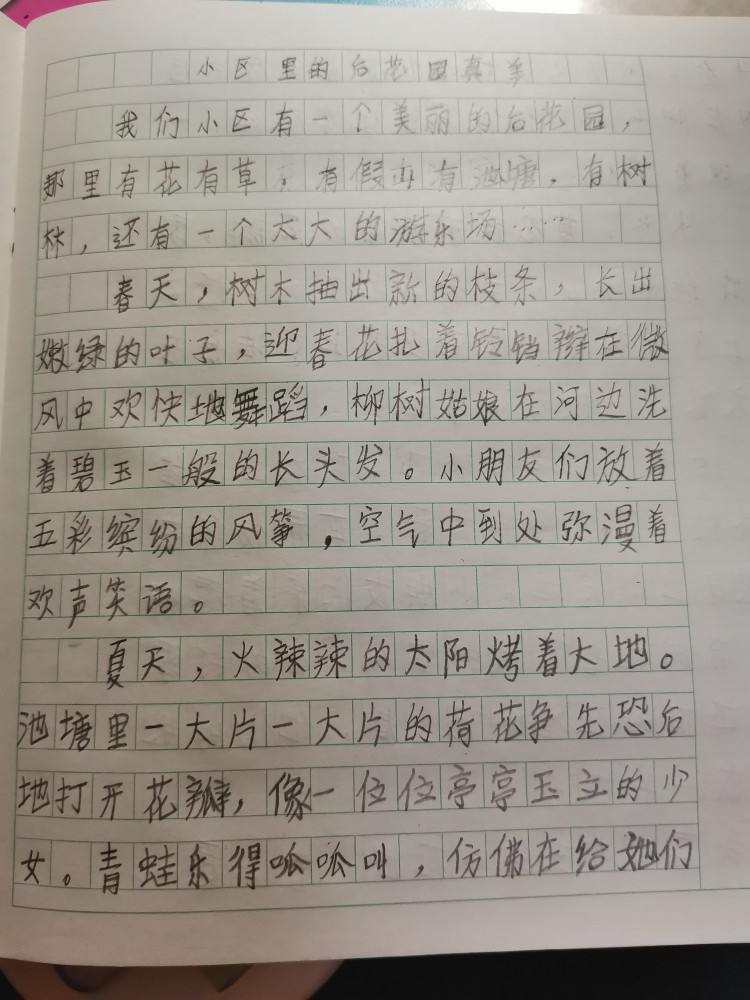 小区里的后花园真美
我们小区有一个美丽的后花园，
那里有花有草，有假山有池塘，有树
林，还有一个大大的游乐场……
春天，树木抽出新的枝条，长出
嫩绿的叶子，迎春花扎着铃铛辫在微
风中欢快地舞蹈，柳树姑娘在河边洗
着碧玉一般的长头发。小朋友们放着
五彩缤纷的风筝，空气中到处弥漫着
欢声笑语。
夏天，火辣辣的太阳烤着大地。
池塘里一大片一大片的荷花争先恐后
地打开花瓣，像一位位亭亭玉立的少
女。青蛙乐得呱呱叫，仿佛在给她们